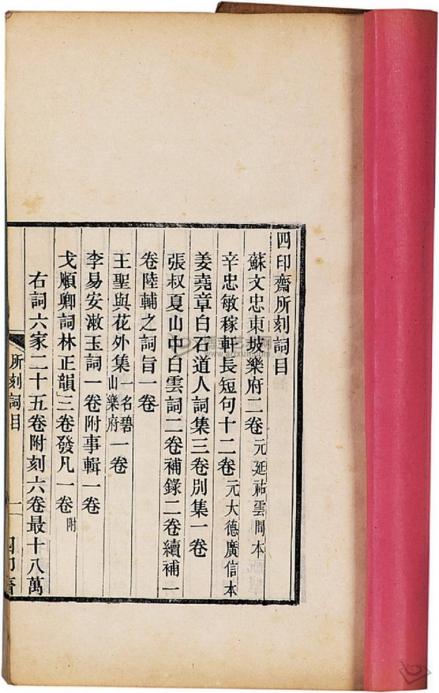 四印齋所刻詞目
蘇文忠東坡樂府二卷 元延祐雲間本
辛忠敏稼軒長短句十二卷 元大德廣信本
姜堯章白石道人詞集三卷別集一卷
張叔夏山中白雲詞二卷補錄二卷續補一
卷陸輔之詞旨一卷
王聖與花外集 一名碧山樂府 一卷
李易安漱玉詞一卷附事輯一卷
戈順卿詞林正韻三卷發凡一卷 附
右詞六家二十五卷附刻六卷最十八萬
所刻詞目
一
四印齋